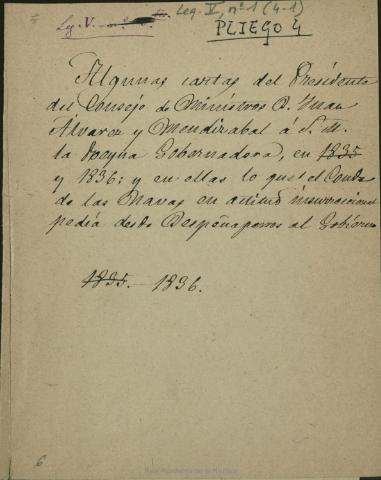 Leg. V, nº 1 (4-1)
Leg. V.
PLIEGO 4
Algunas cartas del Presidente
del Consejo de Ministros D. Juan
Álvarez y Mendizabal á S. M.
la Reyna Gobernadora, en 1835
y 1836; y en ellas lo que el Conde
de las Navas en actitud insurreccional
pedía desde Despeñaperros al Gobierno
1835 - 1836.
6
Real Academia de la Historia